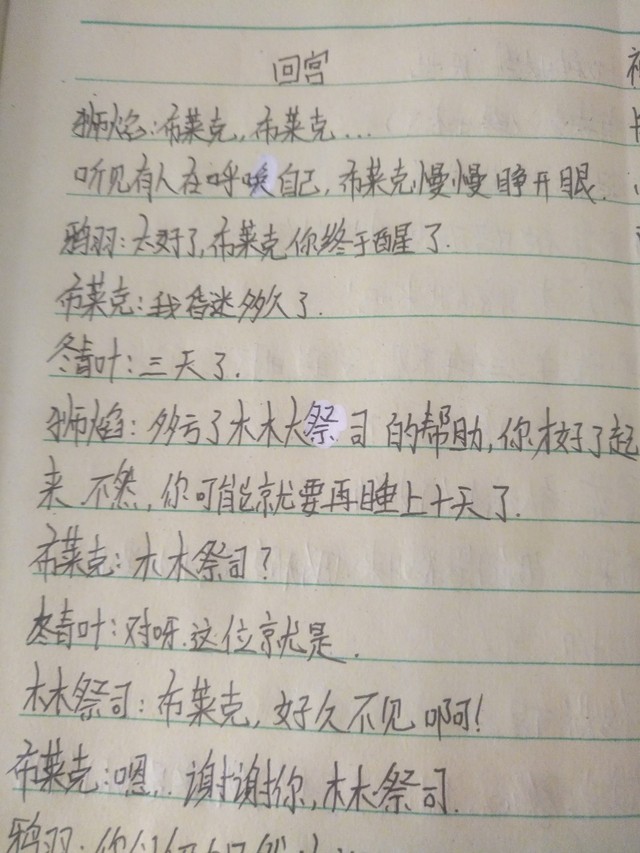 回宫
狮焰:布莱克,布莱克...
听见有人在呼唤自己,布莱克慢慢睁开眼.
鸦羽:太好了,布莱克你终于醒了.
布莱克:我昏迷多久了.
冬青叶:三天了.
狮焰:多亏了木木大祭司的帮助,你才好了起
来 不然,你可能就要再睡上十天了.
布莱克:木木祭司?
冬青叶:对呀.这位就是.
木木祭司:布莱克,好久不见啊!
布莱克:嗯.. 谢谢你,木木祭司.
鸦羽:你们